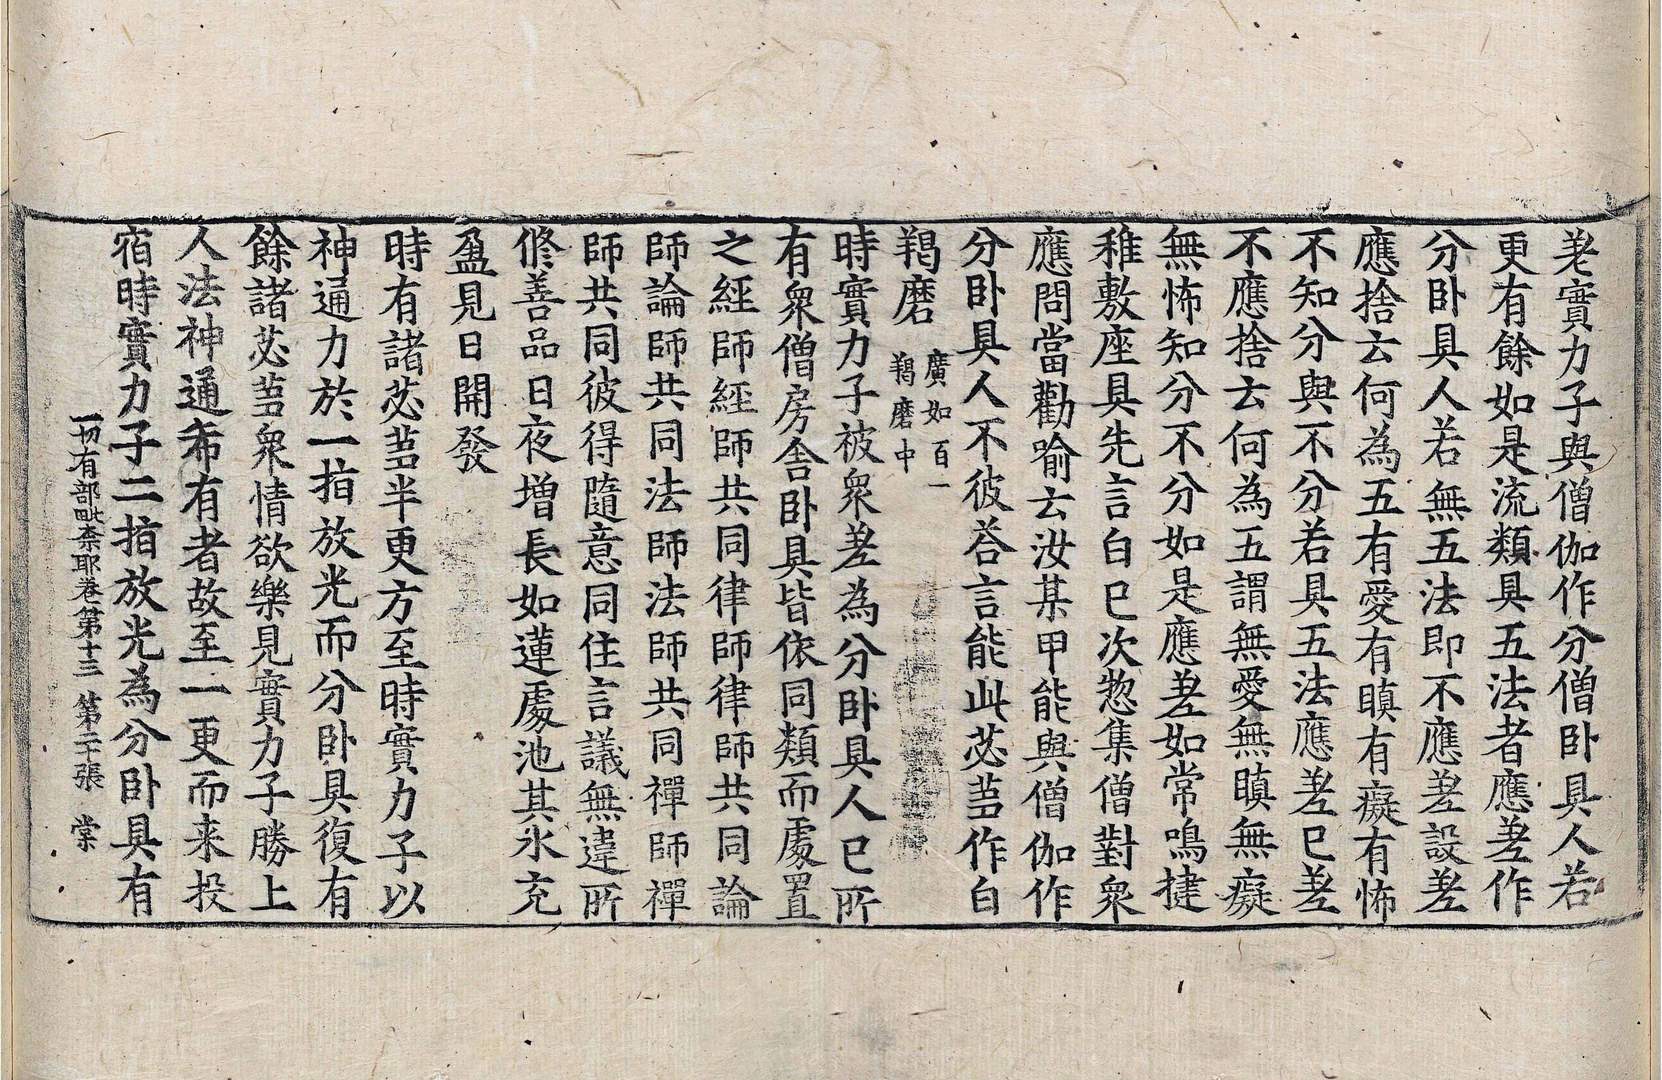 差實力子與僧伽作分僧卧具人若
更有餘如是流類具五法者應差作
分卧具人若無五法即不應差設差
應捨云何為五有愛有瞋有癡有怖
不知分與不分若具五法應差已差
不應捨云何為五謂無愛無瞋無癡
無怖知分不分如是應差如常鳴揵
稚敷座具先言白已次惣集僧對衆
應問當勸喻云汝某甲能與僧伽作
分卧具人不彼荅言能此苾芻作白
羯磨 廣如百一
羯磨中
時實力子被衆差為分卧具人已所
有衆僧房舍卧具皆依同類而處置
之經師經師共同律師律師共同論
師論師共同法師法師共同禪師禪
師共同彼得隨意同住言議無違所
修善品日夜增長如蓮處池其水充
盈見日開發
時有諸苾芻半更方至時實力子以
神通力於一指放光而分卧具復有
餘諸苾芻衆情欲樂見實力子勝上
人法神通希有者故至一更而来投
宿時實力子二指放光為分卧具有
一切有部毗奈耶卷第十三 第二十張 棠